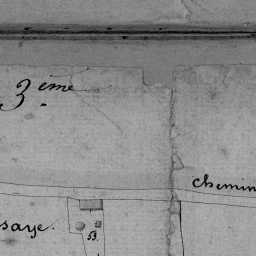 3.ème
chemin
saye.
B.